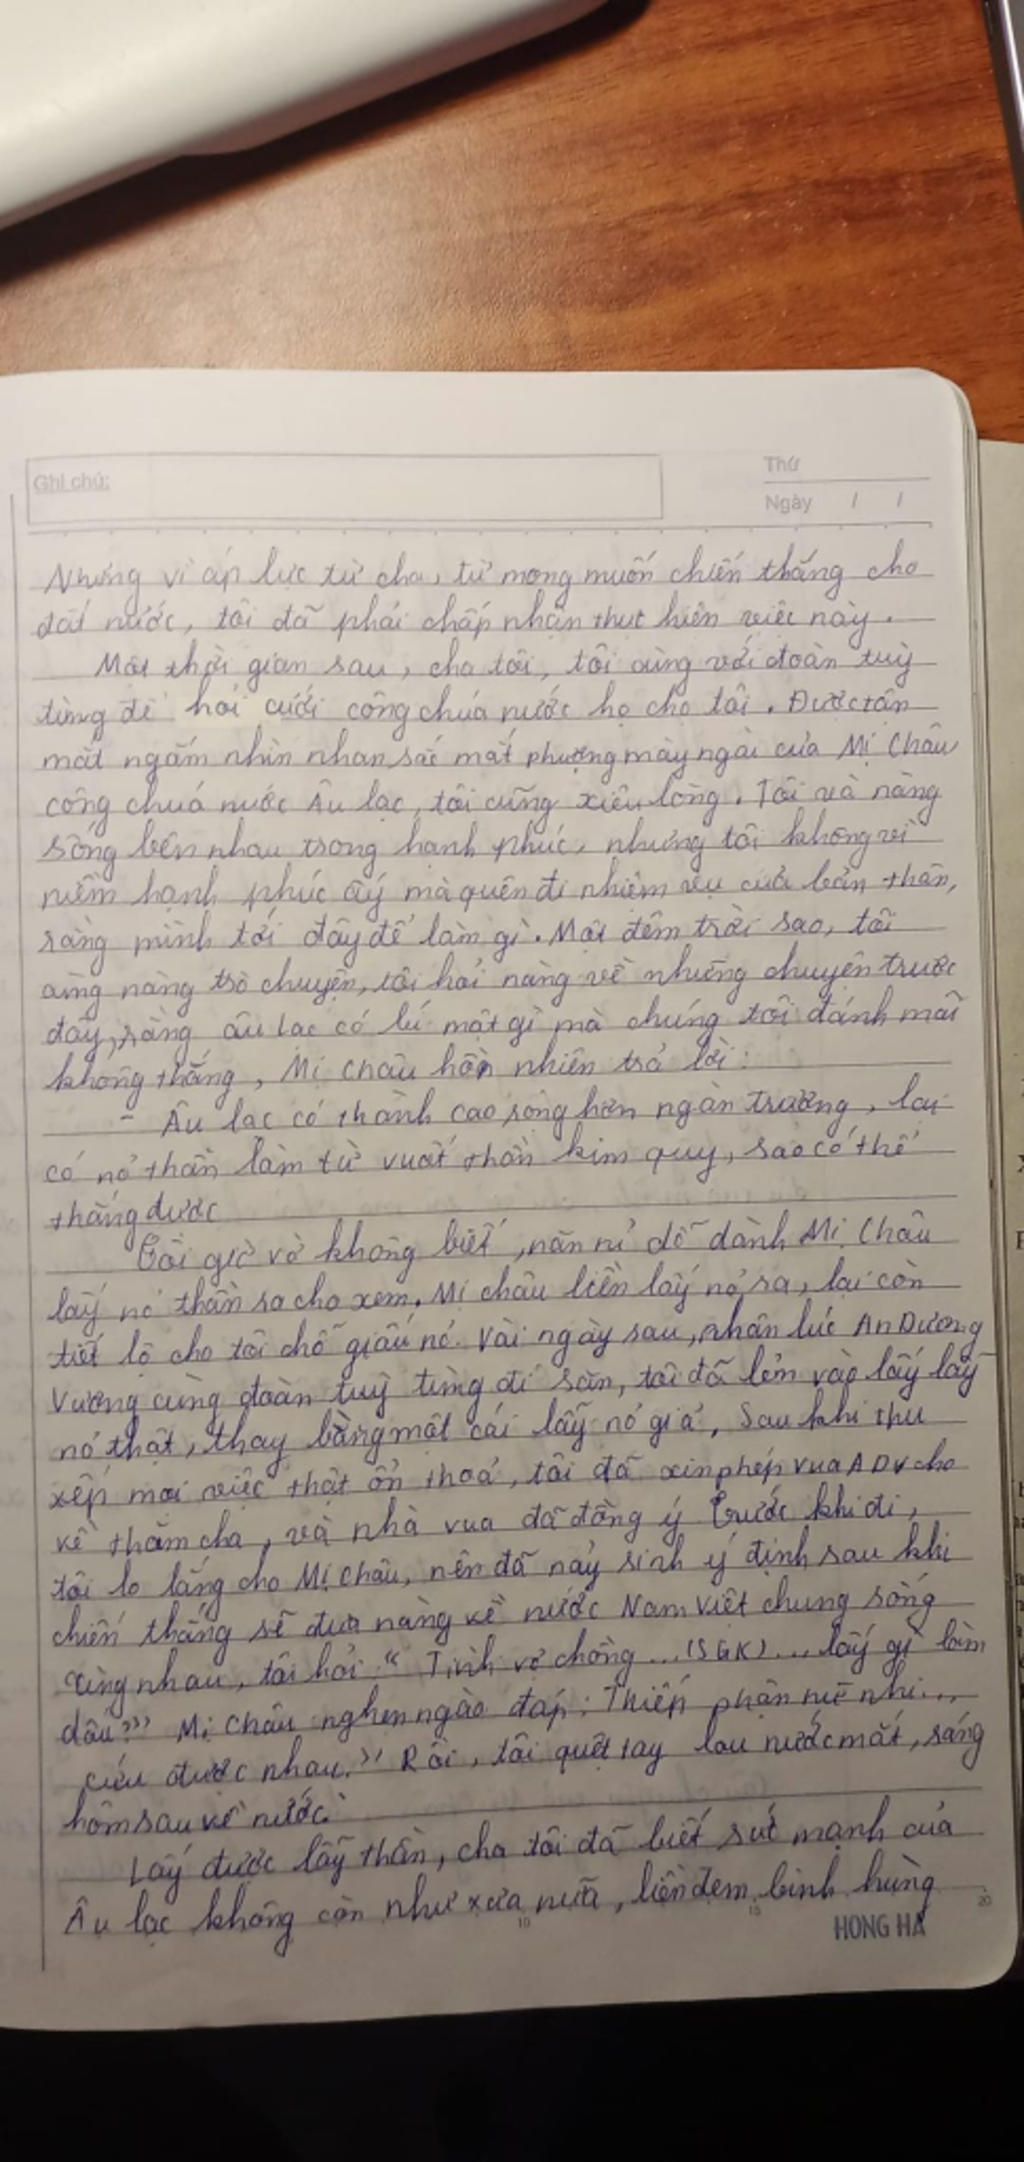 Ghi chú:
Thứ
Ngày / /
Nhưng vì áp lực từ cha, từ mong muốn chiến thắng cho
đất nước, tôi đã phải chấp nhận thực hiện việc này.
Một thời gian sau, cha tôi, tôi cùng với đoàn tuỳ
tùng đi hỏi cưới công chúa nước họ cho tôi. Được tận
mắt ngắm nhìn nhan sắc mắt phượng mày ngài của Mị Châu
công chuá nước Âu lạc, tôi cũng xiêu lòng. Tôi và nàng
sống bên nhau trong hạnh phúc, nhưng tôi không vì
niềm hạnh phúc ấy mà quên đi nhiệm vụ của bản thân,
rằng mình tới đây để làm gì. Một đêm trời sao, tôi
cùng nàng trò chuyện, tôi hỏi nàng về những chuyện trước
đây, rằng âu lạc có bí mật gì mà chúng tôi đánh mãi
không thắng, Mị Châu hồn nhiên trả lời:
- Âu lạc có thành cao, rộng hơn ngàn trượng, lại
có nỏ thần làm từ vuốt thần kim quy, sao có thể
thắng được
Tôi giả vờ không biết, năn nỉ dỗ dành Mị Châu
lấy nỏ thần ra cho xem. Mị châu liền lấy nỏ ra, lại còn
tiết lộ cho tôi chỗ giấu nó. Vài ngày sau, nhân lúc An Dương
Vương cùng đoàn tuỳ tùng đi săn, tôi đã lẻn vào lấy lẫy
nỏ thật, thay bằng một cái lẫy nỏ giả, Sau khi thu
xếp mọi việc thật ổn thoả, tôi đã xin phép vua ADV cho
về thăm cha, và nhà vua đã đồng ý Trước khi đi,
tôi lo lắng cho Mị Châu, nên đã nảy sinh ý định sau khi
chiến thắng sẽ đưa nàng về nước Nam Việt chung sống
cùng nhau, tôi hỏi "Tình vợ chồng ...(SGK)... lấy gì làm
dấu?" Mị Châu nghẹn ngào đáp: Thiếp phận nữ nhi...
cứu được nhau." Rồi, tôi quệt tay lau nước mắt, sáng
hôm sau về nước.
Lấy được lẫy thần, cha tôi đã biết sức mạnh của
Âu lạc không còn như xưa nữa, liền đem binh hùng
10 15 20
HONG HA